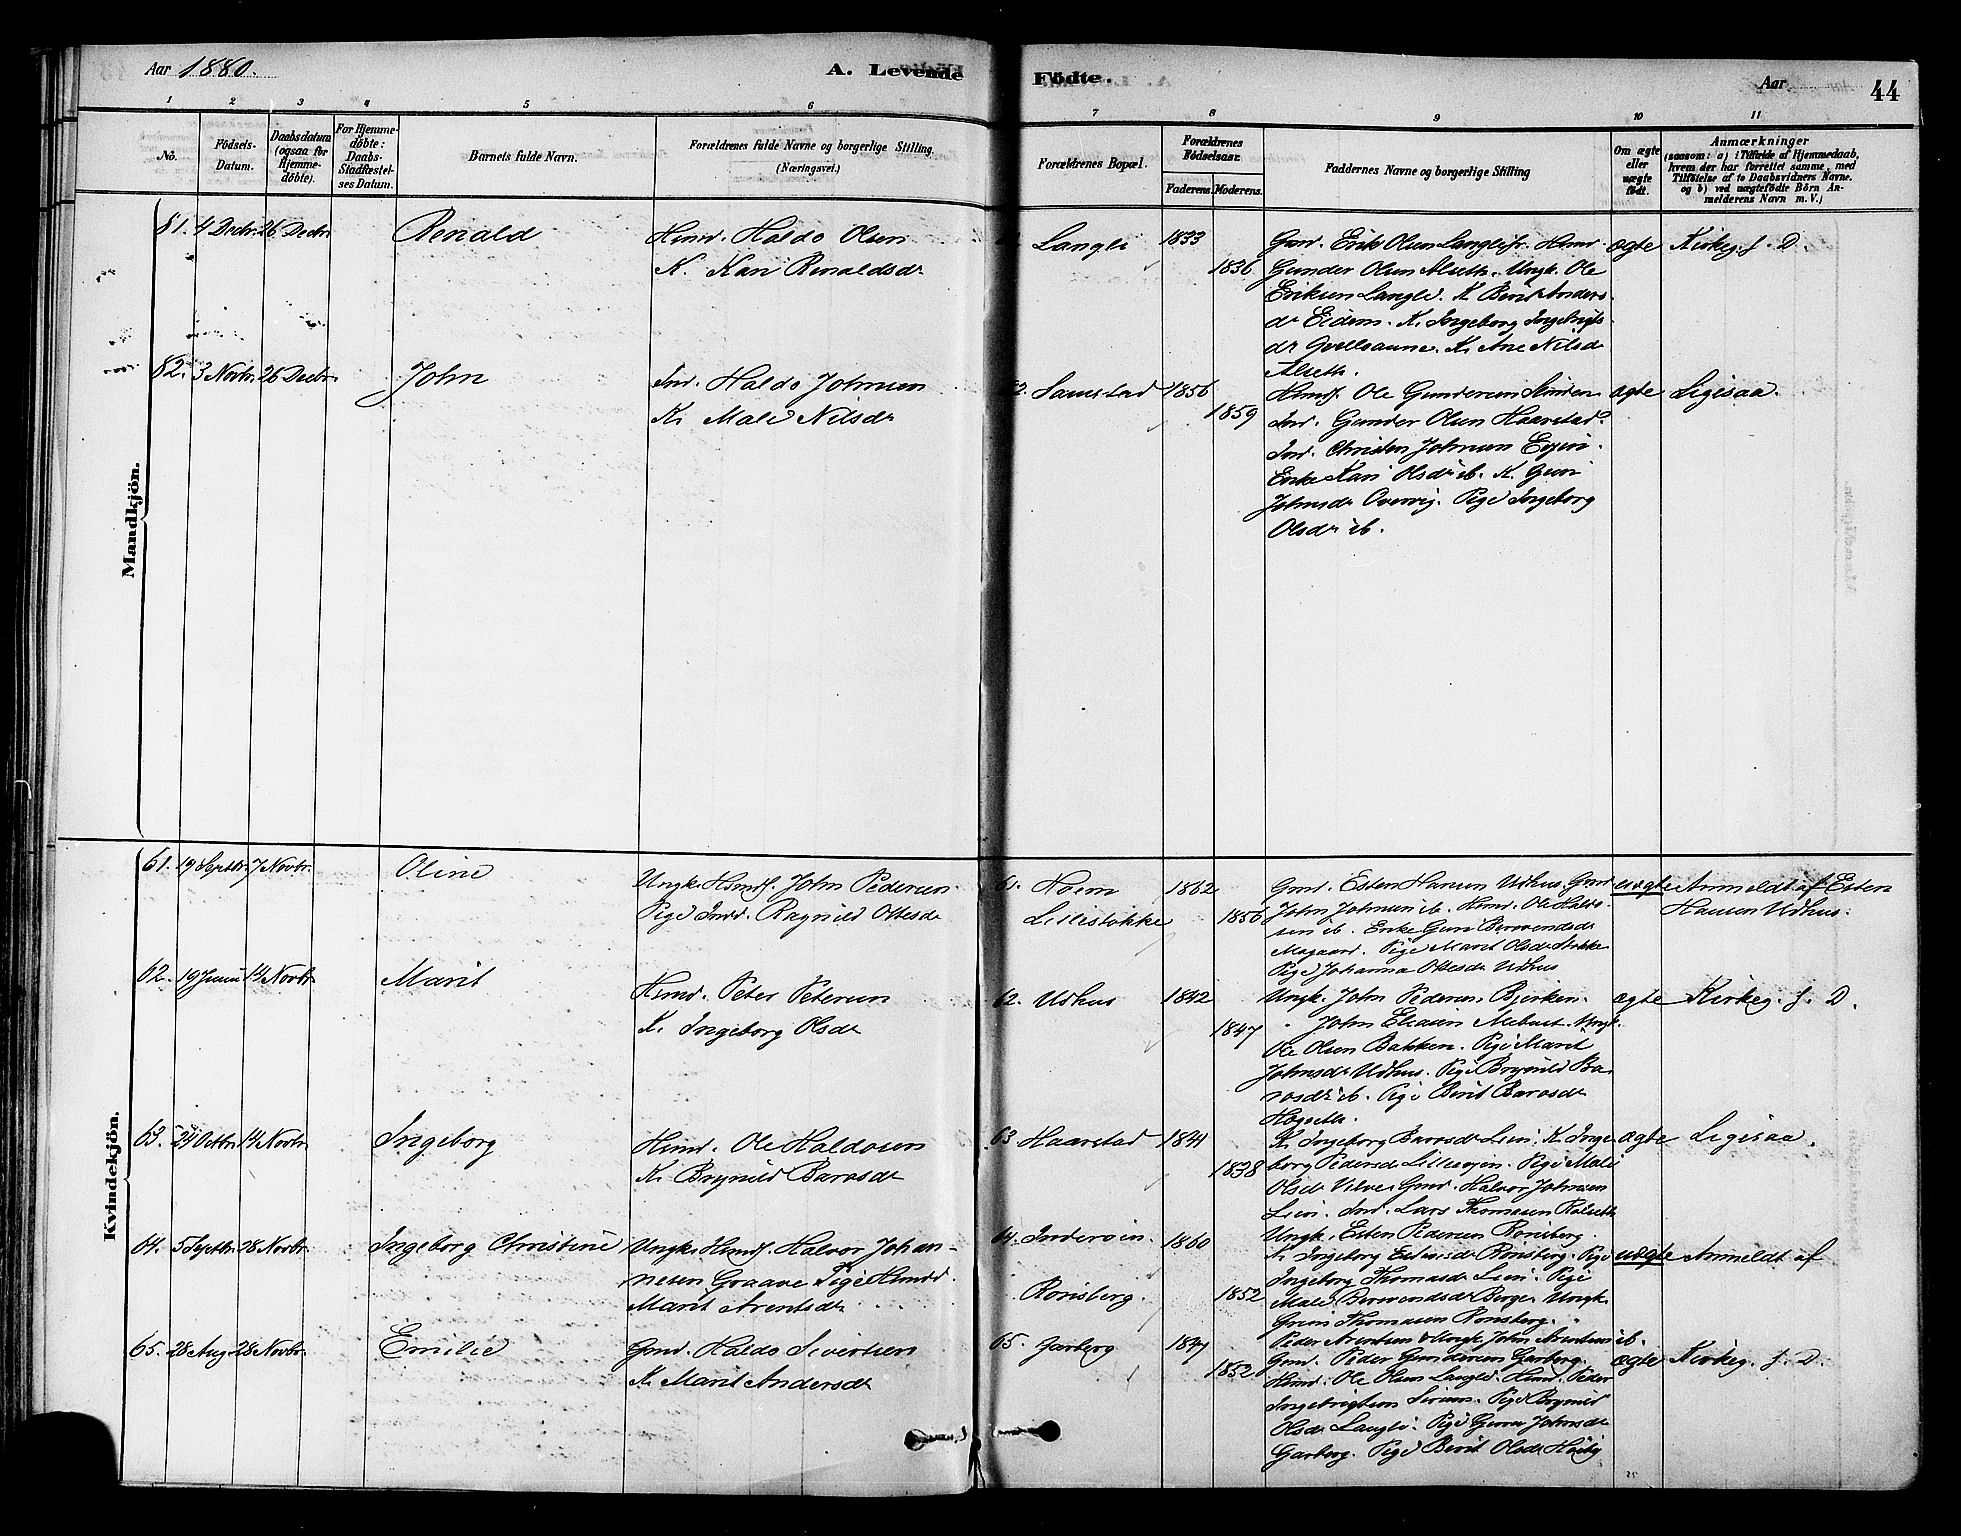 Aar 1880.
A. Levende Födte.
Aar
44
1 2 3 4 5 6 7 8 9 10 11
No.
Födsels-
Datum.
Daabsdatum
(ogsaa for
Hjemme-
döbte).
For Hjemme-
döbte:
Daabs-
Stadfæstel-
ses Datum.
Barnets fulde Navn.
Forældrenes fulde Navne og borgerlige Stilling.
(Næringsvei.)
Forældrenes Bopæl.
Forældrenes
Födselsaar.
Faderens. Moderens.
Faddernes Navne og borgerlige Stilling
Om ægte
eller
uægte
født.
Anmærkninger
(saasom: a) i Tilfælde af Hjemmedaab,
hvem der har forrettet samme, med
Tilføielse af to Daabsvidners Navne.
og b) ved uægtefödte Börn An-
melderens Navn m. V.)
Mandkjön.
81. 4 Decbr. 26 Decbr
Renald
Hmd. Haldo Olsen
K. Kari Renaldsdr
Langli 1833
1836
Gmd. Erik Olsen Langli. Hmd.
Gunder Olsen Alseth. Ungk. Ole
Eriksen Langli. K. Berit Anders
dr Eidem. K. Ingeborg Ingebrigts
dr K. Ane Nilsd
Alseth.
ægte Kirkeg. f. D.
82. 3 Novbr. 26 Decbr.
John
Ind. Haldo Johnsen
K. Mali Nilsdr
Samstad 1856
1859
Hmd. Ole Gundersen
Ind. Gunder Olsen Haarstad.
Ind. Christen Johnsen
Enke Kari Olsdr ib. K. Guri
Johnsdr Overvig. Pige Ingeborg
Olsdr ib.
ægte Ligesaa.
Kvindekjön.
61. 19 Septbr. 7 Novbr.
Oline
Ungk. Hsmdf. John Pedersen
Pige Ind. Ragnild Ottesdr
61. Moum
Lillestokke
1862
1856
Gmd. Esten Hansen Udhus. Gmd
John Johnsen ib. Hsmd. Ole Haldo
sen ib. Enke Guri Berendsdr
Mogaard. Pige Marit Olsdr Stokke
Pige Johanna Ottesdr Udhus
uægte Anmeldt af Esten
Hansen Udhus.
62. 19 Juni 14 Novbr.
Marit
Hsmd. Peter Petersen
K. Ingeborg Olsdr
62. Udhus 1842
1847
Ungk. John Pedersen Bjerken.
" John Eliasen Mebust. Ungk.
Ole Olsen Bakken. Pige Marit
Johnsdr Udhus. Pige Brynild Ba
rosdr ib. Pige Berit Barosdr
Hogseth.
ægte Kirkeg. f. D.
63. 24 Octbr. 14 Novbr.
Ingeborg
Hsmd. Ole Haldosen
K. Brynild Barosdr
63 Haarstad 1841
1838
K. Ingeborg Barosdr Lien. K. Inge
borg Pedersdr Pige Mali
Olsdr Gmd. Halvor Johnsen
Lien. Ind. Lars Thomesen
ægte Ligesaa.
64. 5 Septbr. 28 Novbr.
Ingeborg Christine
Ungk. Hsmdf. Halvor Johan-
nesen Graave Pige Hmdd.
Marit Arentsdr
64. Inderøien.
Ronsberg.
1860
1852
Ungk. Esten Pedersen Ronsberg.
K. Ingeborg Estensdr Ronsberg. Pige
Ingeborg Thomasdr Lien. Pige
Mali Berendsdr Berge. Ungk.
Grim Thomasen Ronsberg.
Peder Arentsen Ungk. John Arentsen ib.
uægte Anmeldt af
65. 28 Aug 28 Novbr.
Emilie
Gmd. Haldo Sivertsen
K. Marit Andersdr
65. Garberg 1847
1852
Gmd. Peder Gundersen Garberg.
Hsmd. Ole Olsen Langli. Hsmd. Peder
Ingebrigtsen Pige Brynild
Olsdr Langli. Pige Guru Johnsdr
Garberg. Pige Berit Olsdr
ægte Kirkeg. f. D.